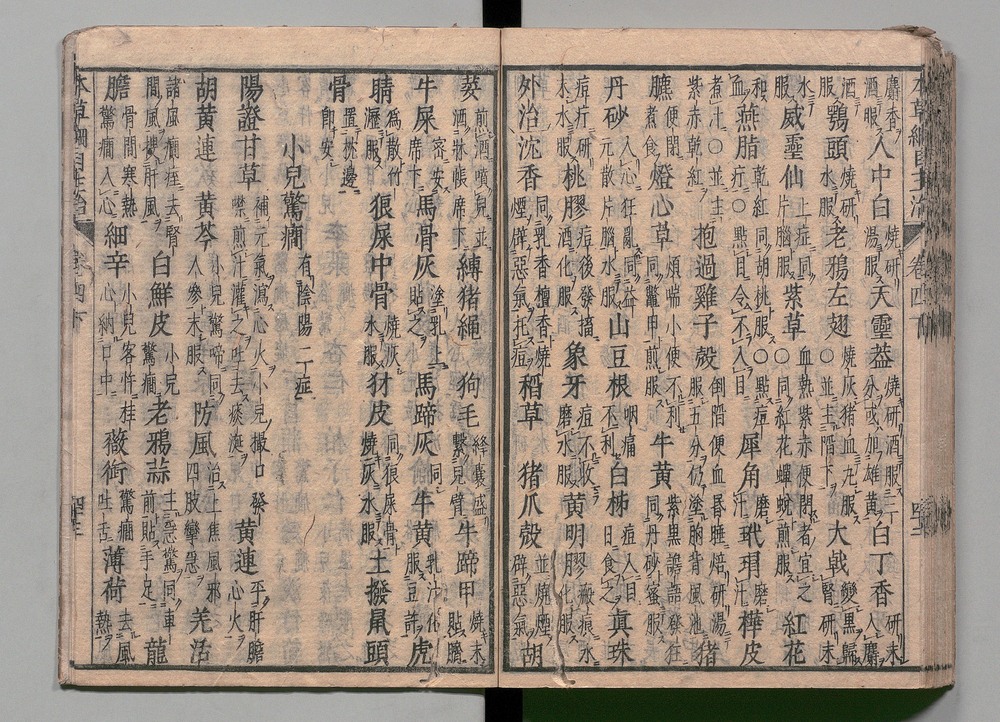 本草綱目主治　卷四下
麝香酒服　人中白　燒研湯服　天靈蓋　燒研酒服三分或加雄黃　白丁香　研末入麝
酒服　鶚頭　燒研水服　老鴉左翅　燒灰猪血丸服○並主陷下　大戟　變黒歸腎研末
水服　威靈仙　上症同片腦服　紫草　血熱紫赤便閉者宜之同紅花蟬蛻煎服　紅花
和血　燕脂　乾紅同胡桃服○點痘○點目令不入目　犀角汁　磨　玳瑁汁　磨　樺皮
煮汁○並主紫赤乾紅　抱過雞子殻　倒陷便血昏睡焙研湯服五分仍塗胸背風池　猪
臕　煮食　燈心草　煩喘小便不利同鱉甲煎服　牛黃　紫黑譫語發狂同丹砂蜜服
丹砂　入心狂亂同益元散片腦水服　山豆根　咽痛不利　白柹　痘入目日食之　眞珠
痘疔研水服　桃膠　痘後發搐酒化服　象牙　痘不收磨水服　黃明膠　瘢痕水化服
外治　沈香　同乳香檀香燒煙辟惡氣托痘　稻草　猪爪殻　並燒煙辟惡氣　胡
荽　煎酒噴兒並洒牀帳席下　縛猪繩　狗毛　絳囊盛繫兒臂　牛蹄甲　燒末貼臍
牛屎　密安席下　馬骨灰　塗乳上貼之　馬蹄灰　牛黃　乳汁化服豆許　虎
睛　爲散竹瀝服　狼屎中骨　燒灰水服　犲皮　同狼屎骨燒灰水服　土撥鼠頭
骨　置枕邊即安
小兒驚癇　有陰陽二症
陽證　甘草　補元氣瀉心火小兒撮口發噤煎汁灌之吐去痰涎　黃連　平肝膽心火
胡黃連　黃芩　小兒驚啼同人參末服　防風　治上焦風邪四肢攣急　羌活
諸風癇痓去腎間風搜肝風　白鮮皮　小兒驚癇　老鴉蒜　主惡驚同車前貼手足　龍
膽　骨間寒熱驚癇入心　細辛　小兒客忤桂心納口中　薇銜　驚癇吐舌　薄荷　去風熱
本草綱目主治　卷四下